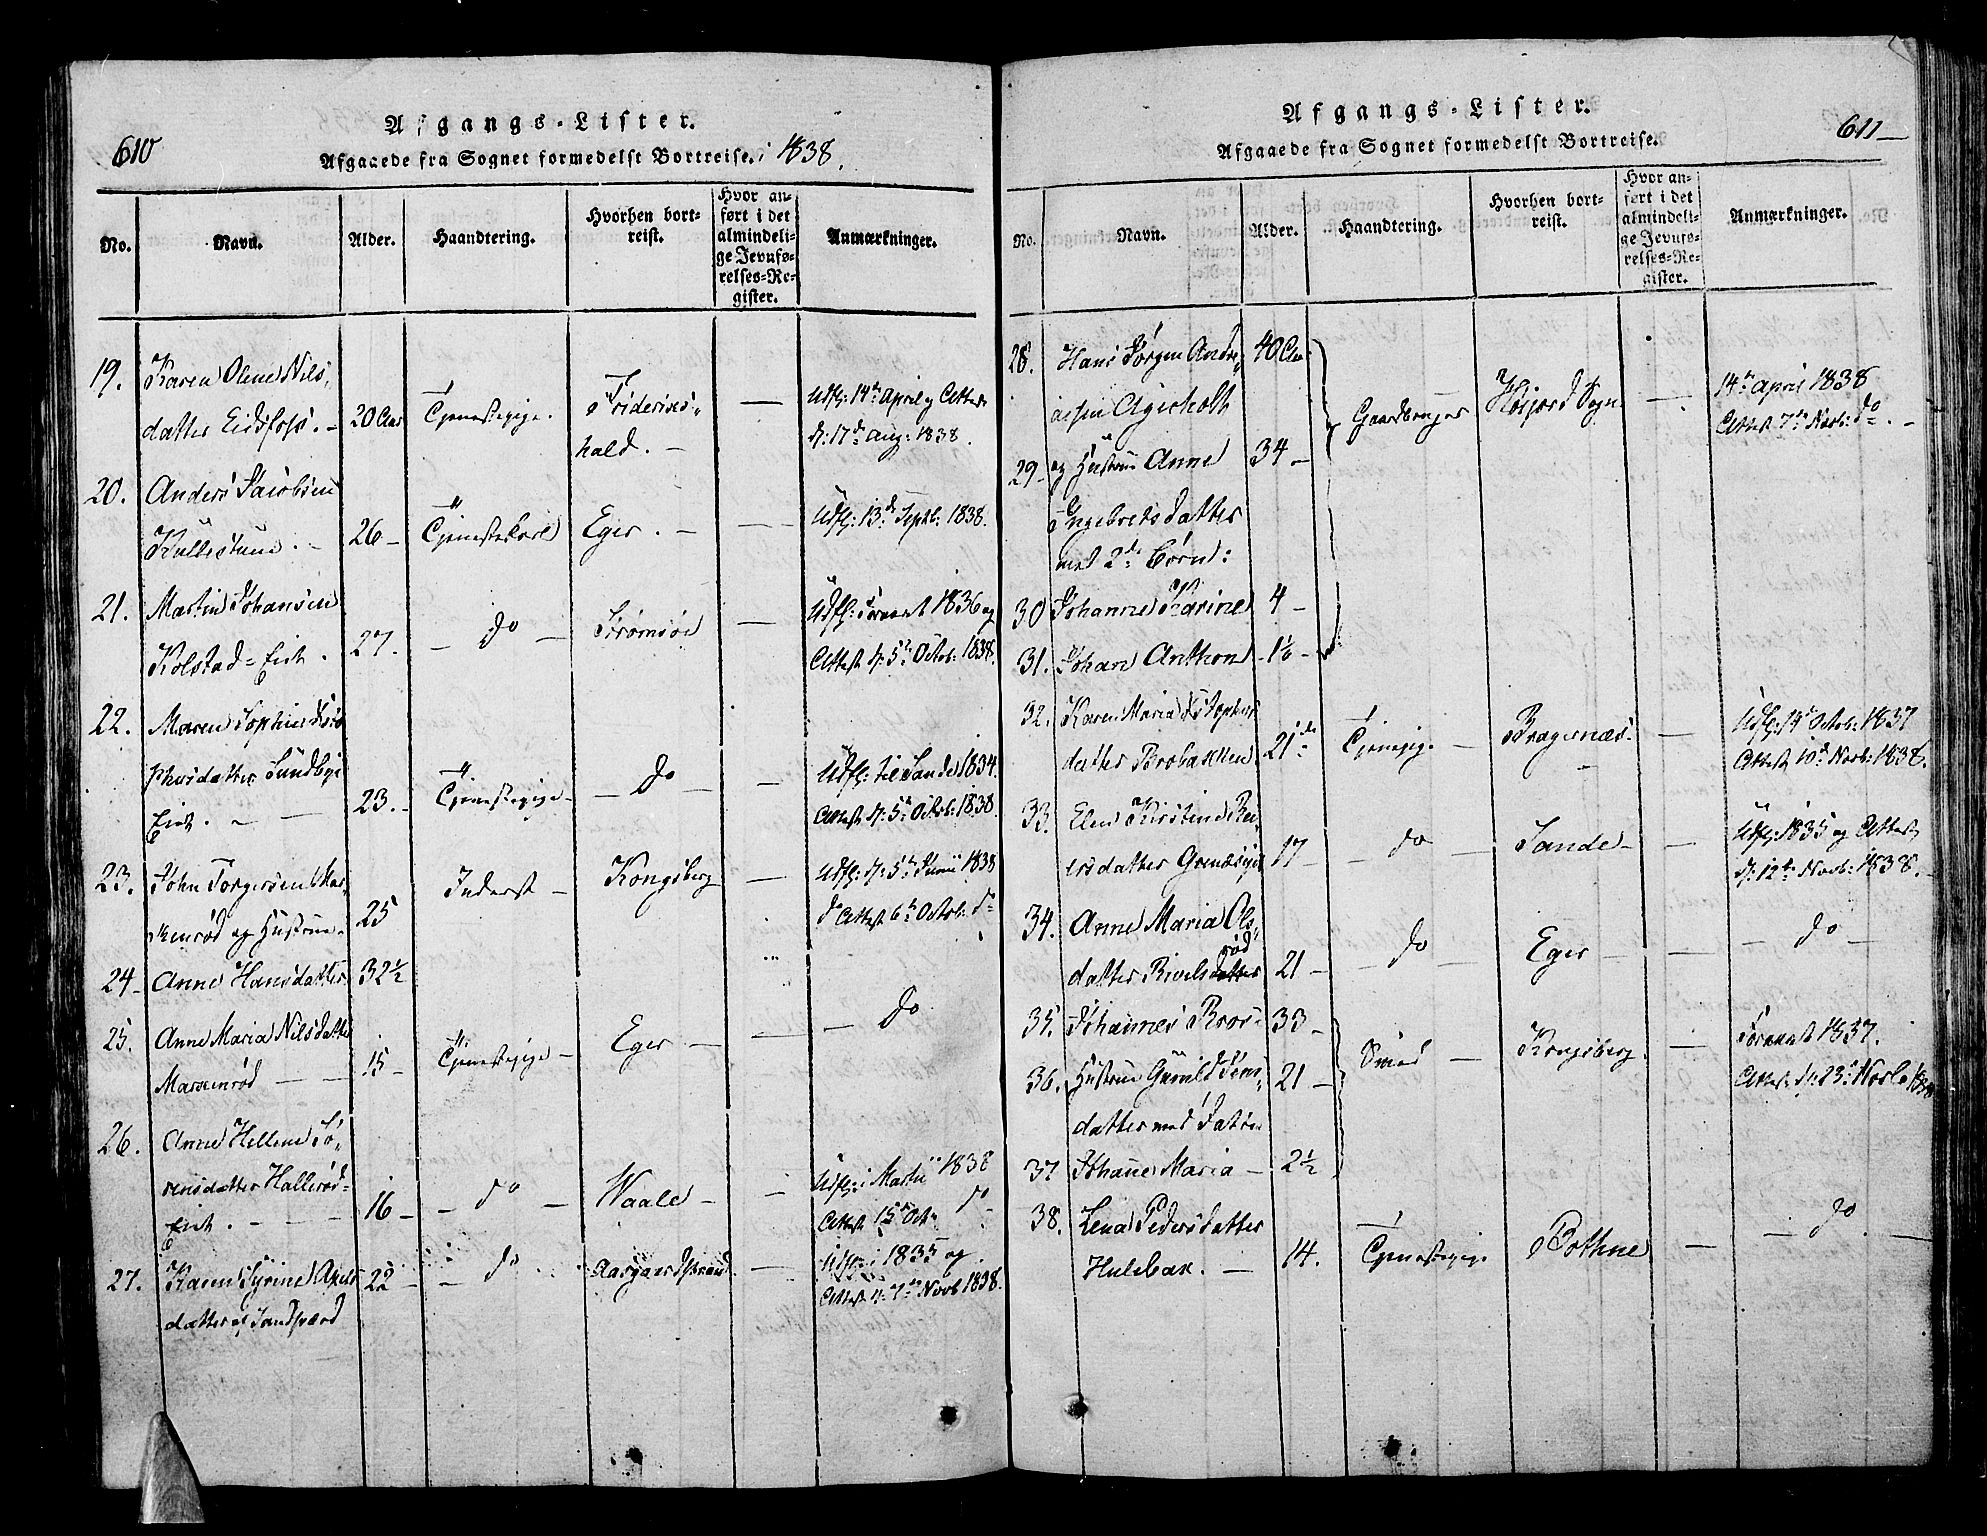 610
Afgangs-Lister.
Afgaaede fra Sognet formedelst Bortreise. i 1838.
No. Navn. Alder. Haandtering. Hvorhen bortreist. Hvor anført i det almindelige Jevnførelses-Register. Anmærkninger.
19. Karen Olene Nils,
datter Eidsfoss. - 20 Aar Tjenestepige. Friderics-
hald. - — Udfl: 14de April og Attest
d: 17de Aug: 1838.
20. Anders Jacobsen
Kullestuen. - 26 - Tjenestekarl Eger. - — Udfl: 13de Septb: 1838.
21. Martin Johansen
Kolstad-Eiet. 27. - do - Strømsøe — Udfl: Foraaret 1836 og
Attest d: 5te Octob: 1838.
22. Maren Sophie
phersdatter Sundbye
Eiet. - — 23. - Tjenestepige - - do - - Udfl: til Sande 1834.
Attest d: 5te Octob: 1838.
23. John Torgersen Mar-
kenrød og Hustrue. 25 Inderst - Kongsberg — Udfl: d: 5te Junii 1838
do Attest 6te Octob: do
24 - Anne Hansdatter 32½
25. Anne Maria Nilsdatter
Markenrød — — 15 - Tjenestepige - Eger - — - do
26. Anne Hellene Sø-
rensdatter Hallerød-
Eiet. - - - 16 - - do - Waale - - Udfl: i Martii 1838
Attest 15de Oct: do
27. Karen Syrine Axels
datter af Sandsværd 22 - - do - Aasgaardstrand - Udfl: i 1835 og
Attest d: 7de Novb 1838.
611 -
Afgangs-Lister.
Afgaaede fra Sognet formedelst Bortreise.
No. Navn. Alder. Haandtering. Hvorhen bortreist. Hvor anført i det almindelige Jevnførelses-Register. Anmærkninger.
28. Hans Jørgen Andre- 40 Aar.
assen Agerholt Gaardbruger Høijord Sogn - 14de april 1838
Attest 7de Novb: do. -
29 - og Hustrue Anne 34 -
Ingebretsdatter
med 2de Børn:
30 Johanne Karine 4 -
31. Johan Anthon - 1½ -
32. Karen Maria
datter Brobakken 21de Tjenepige - Bragernæs - — Udfl: 14de Octob: 1837
Attest 10de Novb: 1838.
33. Elen Kirstine Rei-
ersdatter 17 - - do - Sande - - Udfl: 1835 og Attest
d: 12te Novb: 1838. -
34. Anne Maria Ols-
rød
datter Rivelsdatter 21 - - do - Eger - - - do -
35. Johannes Bros- 33 - Smed - Kongsberg - Foraaret 1837.
36. Hustrue Gunild Jens- 21 - Attest d: 23de Novb 1838
datter med Datter
37 Johanne Maria - 2½
38. Lena Pedersdatter
Hulebak. - 14. Tjenestepige Bothne - - do.